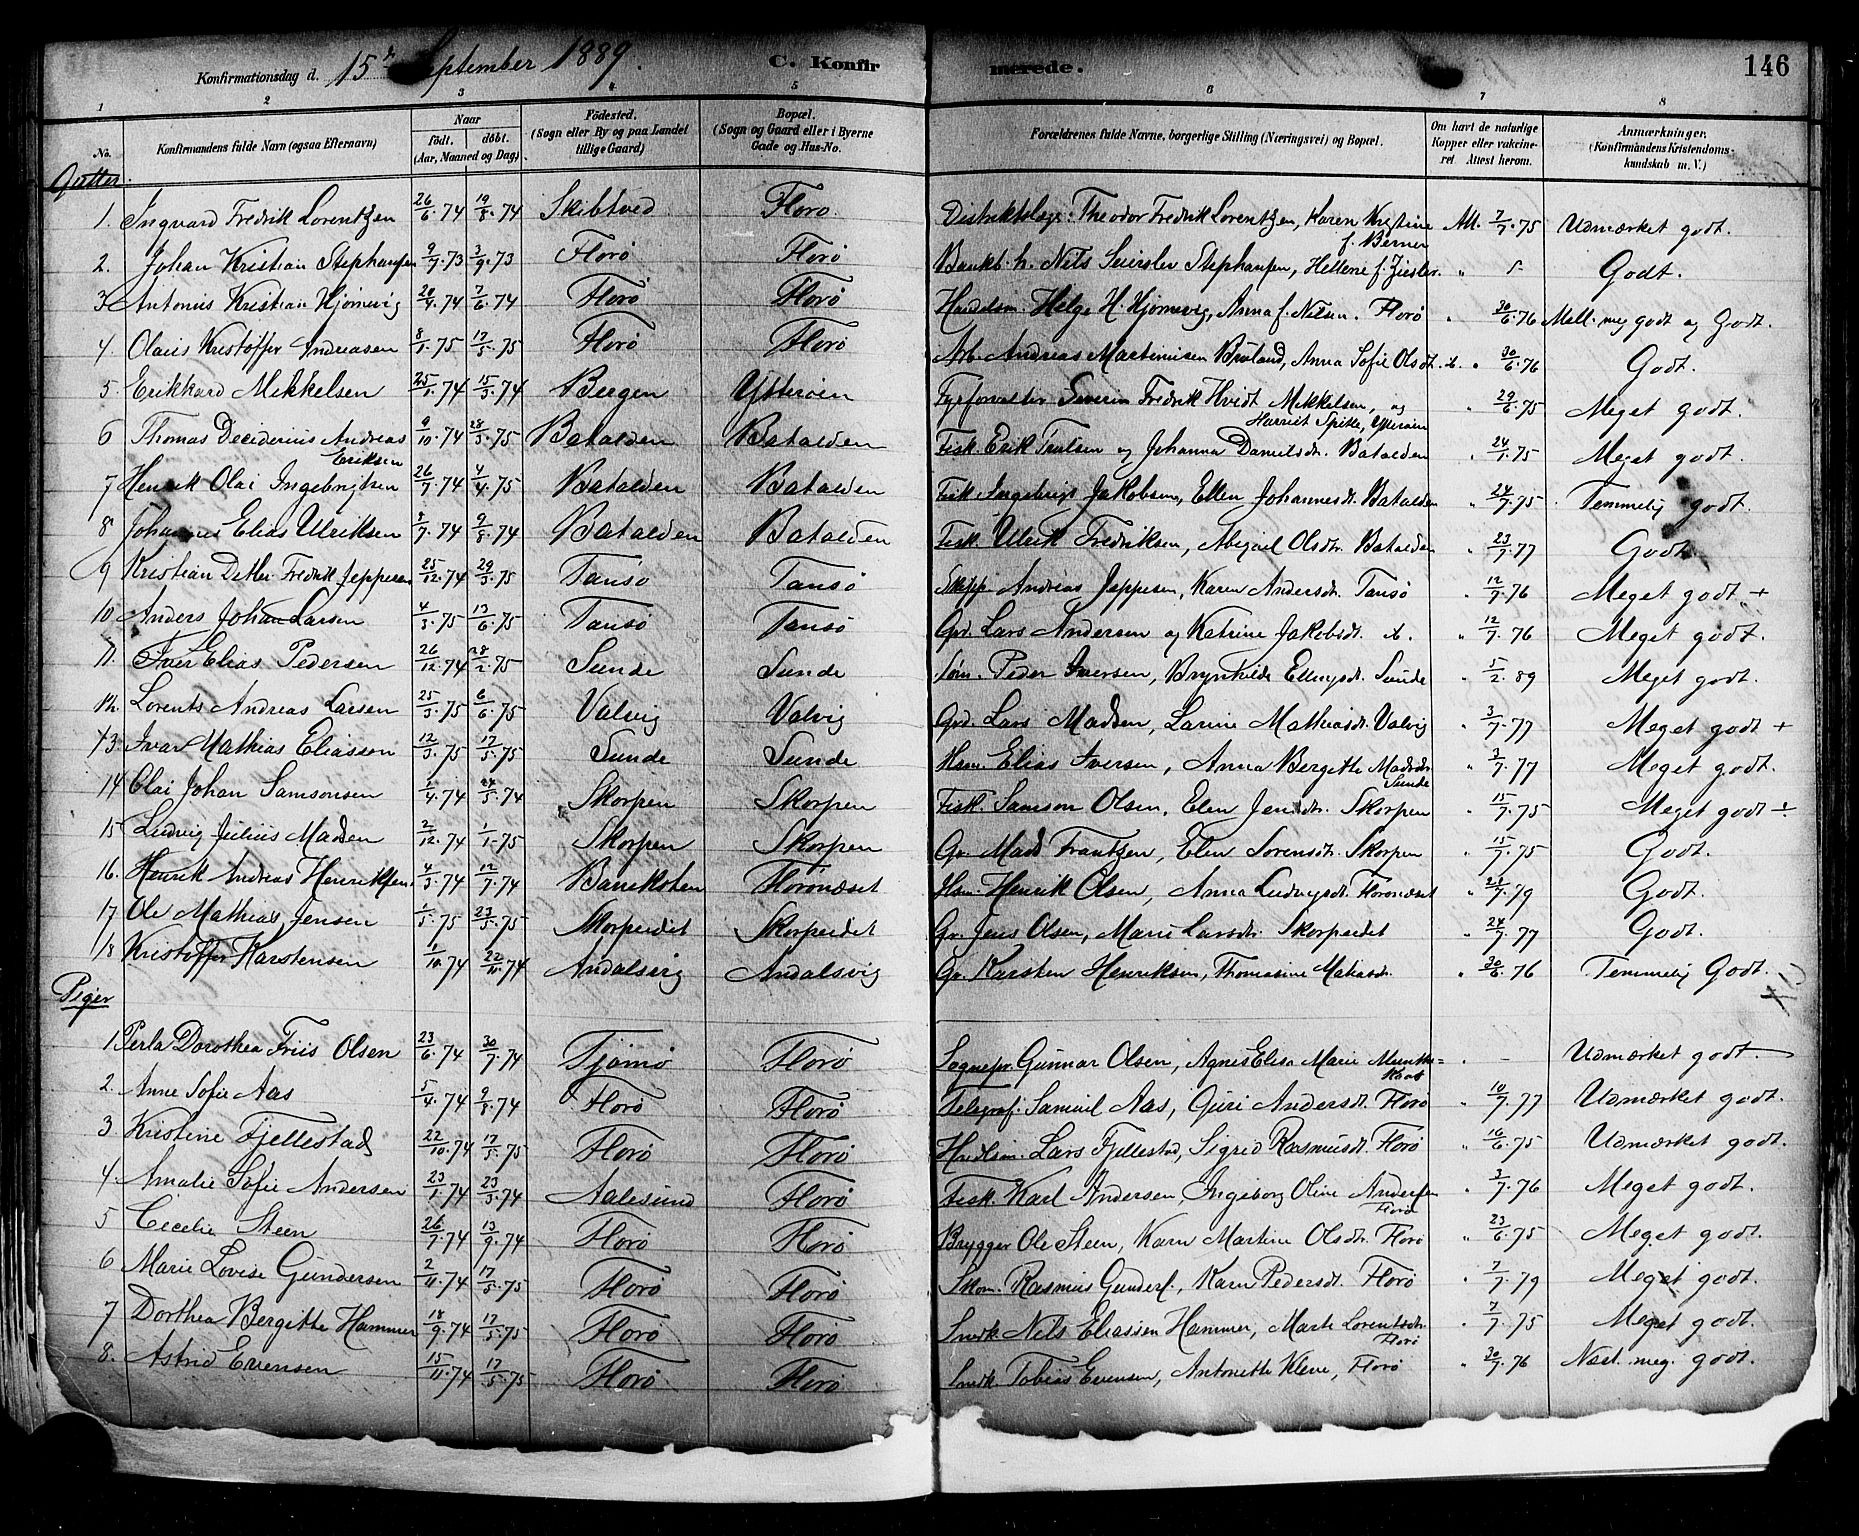 Konfirmationsdag d. 15de September 1889. C. Konfirmerede. 146
1 2 3 4 5 6 7 8
No. Konfirmandens fulde Navn (ogsaa Efternavn) Naar født. døbt. (Aar, Maaned og Dag) Fødested. (Sogn eller By og paa Landet tillige Gaard) Bopæl. (Sogn og Gaard eller i Byerne Gade og Hus-No. Forældrenes fulde Navne, borgerlige Stilling (Næringsvei) og Bopæl. Om havt de naturlige Kopper eller vakcineret. Attest herom. Anmærkninger. (Konfirmandens Kristendomskundskab m. V.)
Gutter.
1. Ingvard Fredrik Lorentzen 26/6.74 19/8.74 Skibtved Florø Distriktslæge Theodor Fredrik Lorentzen, Karen Kristine f. Berner Att. 7/7.75 Udmærket godt.
2. Johan Kristian Stephansen 9/7.73 3/9.73 Florø Florø Bankb.h. Nils Stephansen, Hellene f. " Godt.
3 Antonius Kristian Hjørnevig 20/4.74 7/6.74 Florø Florø Handelsm. Helge H. Hjørnevig, Anna f. Nilsen. Florø " 30/6.76 Mell. meg godt og Godt.
4. Olaus Kristoffer Andreasen 8/1.75 17/5.75 Florø Florø Arb. Andreas Martinusen Bruland, Anna Sofie Olsdt. " 30/6.76 Godt.
5 Erikhard Mikkelsen 25/1.74 15/3.74 Bergen Ytterøen Fyrforvalter Severin Fredrik Hvidt Mikkelsen, og Harriet Spitte, Ytterøen " 29/6.75 Meget godt.
6 Thomas Deciderius Andreas Eriksen 9/10.74 28/3.75 Batalden Batalden Fisk. Erik Trulsen og Johanna Danielsdt. Batalden " 24/7.75 Meget godt.
7 Henrik Olai Ingebrigtsen 26/7.74 4/4.75 Batalden Batalden Fisk. Ingebrigt Jakobsen, Ellen Johannesdt. Batalden " 24/7.75 Temmelig godt.
8 Johannes Elias Ulriksen 8/7.74 9/8.74 Batalden Batalden Fisk. Ulrik Fredriksen, Abigael Olsdt. Batalden " 23/7.77 Godt
9 Kristian Detlev Fredrik Jeppesen 25/12.74 29/3.75 Tansø Tansø Skipp. Andreas Jeppesen, Karen Andersdt. Tansø " 12/7.76 Meget godt +
10 Anders Johan Larsen 4/3.75 13/6.75 Tansø Tansø Grd. Lars Andersen og Katrine Jakobsdt. " 12/7.76 Meget godt.
11. Iver Elias Pedersen 26/12.74 28/2.75 Sunde Sunde Peder Iversen, Brynhilde Ellingsdt. Sunde " 5/2.89 Meget godt.
12. Lorents Andreas Larsen 25/3.75 6/6.75 Valvig Valvig Grd. Lars Madsen, Larine Mathiasdt. Valvig " 3/7.77 Meget godt +
13. Ivar Mathias Eliassen 12/3.75 17/5.75 Sunde Sunde Hsm. Elias Iversen, Anna Bergitte Madsdt. Sunde " 3/7.77 Meget godt.
14 Olai Johan Samsonsen 1/4.74 24/5.74 Skorpen Skorpen Fisk. Samson Olsen, Elen Jensdt. Skorpen " 15/7.75 Meget godt ÷
15 Ludvig Julius Madsen 2/12.74 1/1.75 Skorpen Skorpen Gr. Mads Frantzen, Elen Sorensdt. Skorpen " 15/7.75 Godt.
16. Henrik Andreas Henriksen 4/3.74 12/7.74 Barekoten Florønæset Hsm. Henrik Olsen, Anna Ludvigsdt. Florønæset " 28/7.79 Godt.
17 Ole Mathias Jensen 1/5.75 23/5.75 Skorpeidet Skorpeidet Gr. Jens Olsen, Marie Larsdt. Skorpeidet " 24/7.77 Godt.
18 Kristoffer Karstensen 1/10.74 22/11.74 Andalsvig Andalsvig Gr. Karsten Henriksen, Thomasine Matiasdt. " 30/6.76 Temmelig Godt.
Piger
1. Perla Dorothea Friis Olsen 23/6.74 30/7.74 Tjømø Florø Sognepr. Gunnar Olsen, Agnes Elisa Marie Munthe-Kaas " - Udmærket godt.
2. Anne Sofie Aas 5/4.74 9/8.74 Florø Florø Telegraf. Samuel Aas, Guri Andersdt. Florø " 10/7.77 Udmærket godt.
3. Kristine Fjellestad 22/10.74 17/5.75 Florø Florø Hndlsm. Lars Fjellestad, Sigrid Rasmusdt. Florø " 16/6.75 Udmærket godt.
4 Amalie Sofie Andersen 23/1.74 23/3.74 Aalesund Florø Fisk. Karl Andersen, Ingeborg Oline Andersen Florø " 3/7.76 Meget godt.
5 Cecelie Steen 26/7.74 13/9.74 Florø Florø Brygger Ole Steen, Karn Martine Olsdt. Florø " 23/6.75 Meget godt.
6 Marie Lovise Gundersen 2/11.74 17/5.75 Florø Florø Skom. Rasmus Gunders., Karn Pedersdt. Florø " 7/7.79 Meget godt.
7 Dorthea Bergitte Hammer 18/9.74 17/5.75 Florø Florø Snedk. Nils Eliassen Hammer, Marte Lorentsdt. Florø " 7/7.75 Meget godt.
8. Astrid Evensen 15/11.74 17/5.75 Florø Florø Snedk. Tobias Evensen, Antonette Kleve, Florø " 30/7.76 Næst. meg. godt.